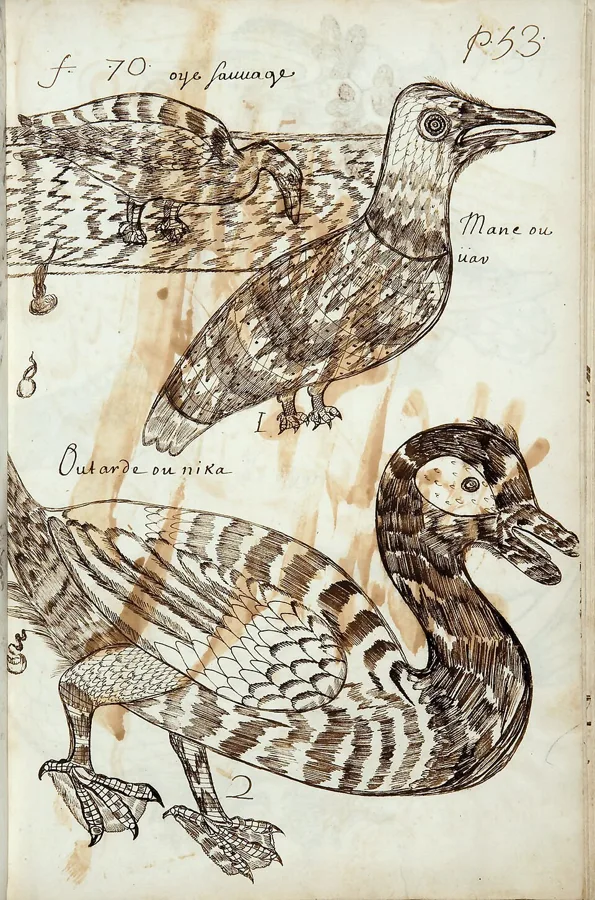 p. 53.
f. 70. oye sauuage
Mane ou
üav
1
Outarde ou nika
2